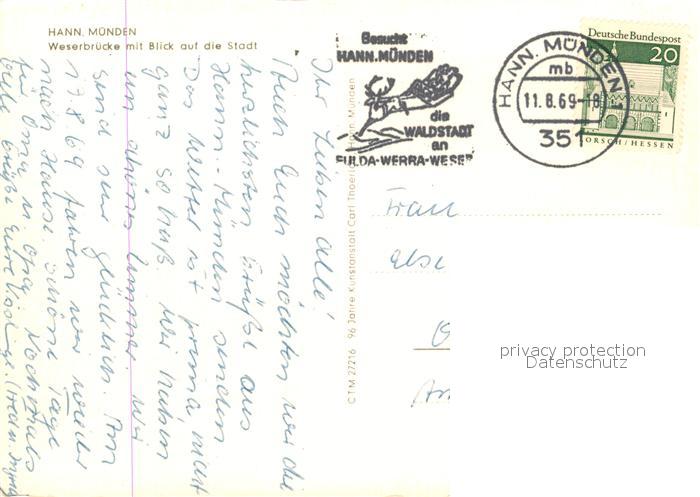 HANN. MÜNDEN
Weserbrücke mit Blick auf die Stadt
Ihr Lieben alle!
Auch Euch möchten wir die
herzlichsten Grüße aus
Hann-Münden senden
Das Wetter ist prima, nicht
ganz so heiß. Wir haben
ein schönes Zimmer. Wir
sind sehr glücklich. Am
17.8.69 fahren wir wieder
nach Hause. Schöne Tage
für Oma u. Opa. Nochmals
viele Grüße Eure
CTM 27216 96 Jahre Kunstanstalt Carl Hann. Münden
Besucht
HANN.MÜNDEN
die
WALDSTADT
an
FULDA-WERRA-WESER
HANN. MÜNDEN 1
mb
11.8.69-18
351
Deutsche Bundespost
20
LORSCH/HESSEN
Frau
Else
privacy protection
Datenschutz